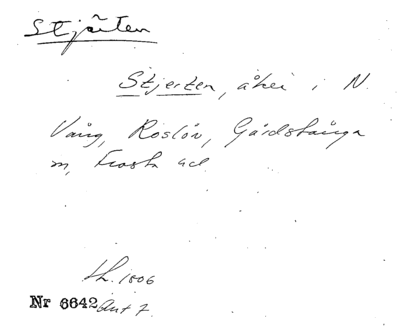 Stjärten
Stjerten, åker i N.
Vång, Roslöv, Gårdstånga
m, Frosta
Lh. 1806
Nr 6642 Ant 7.